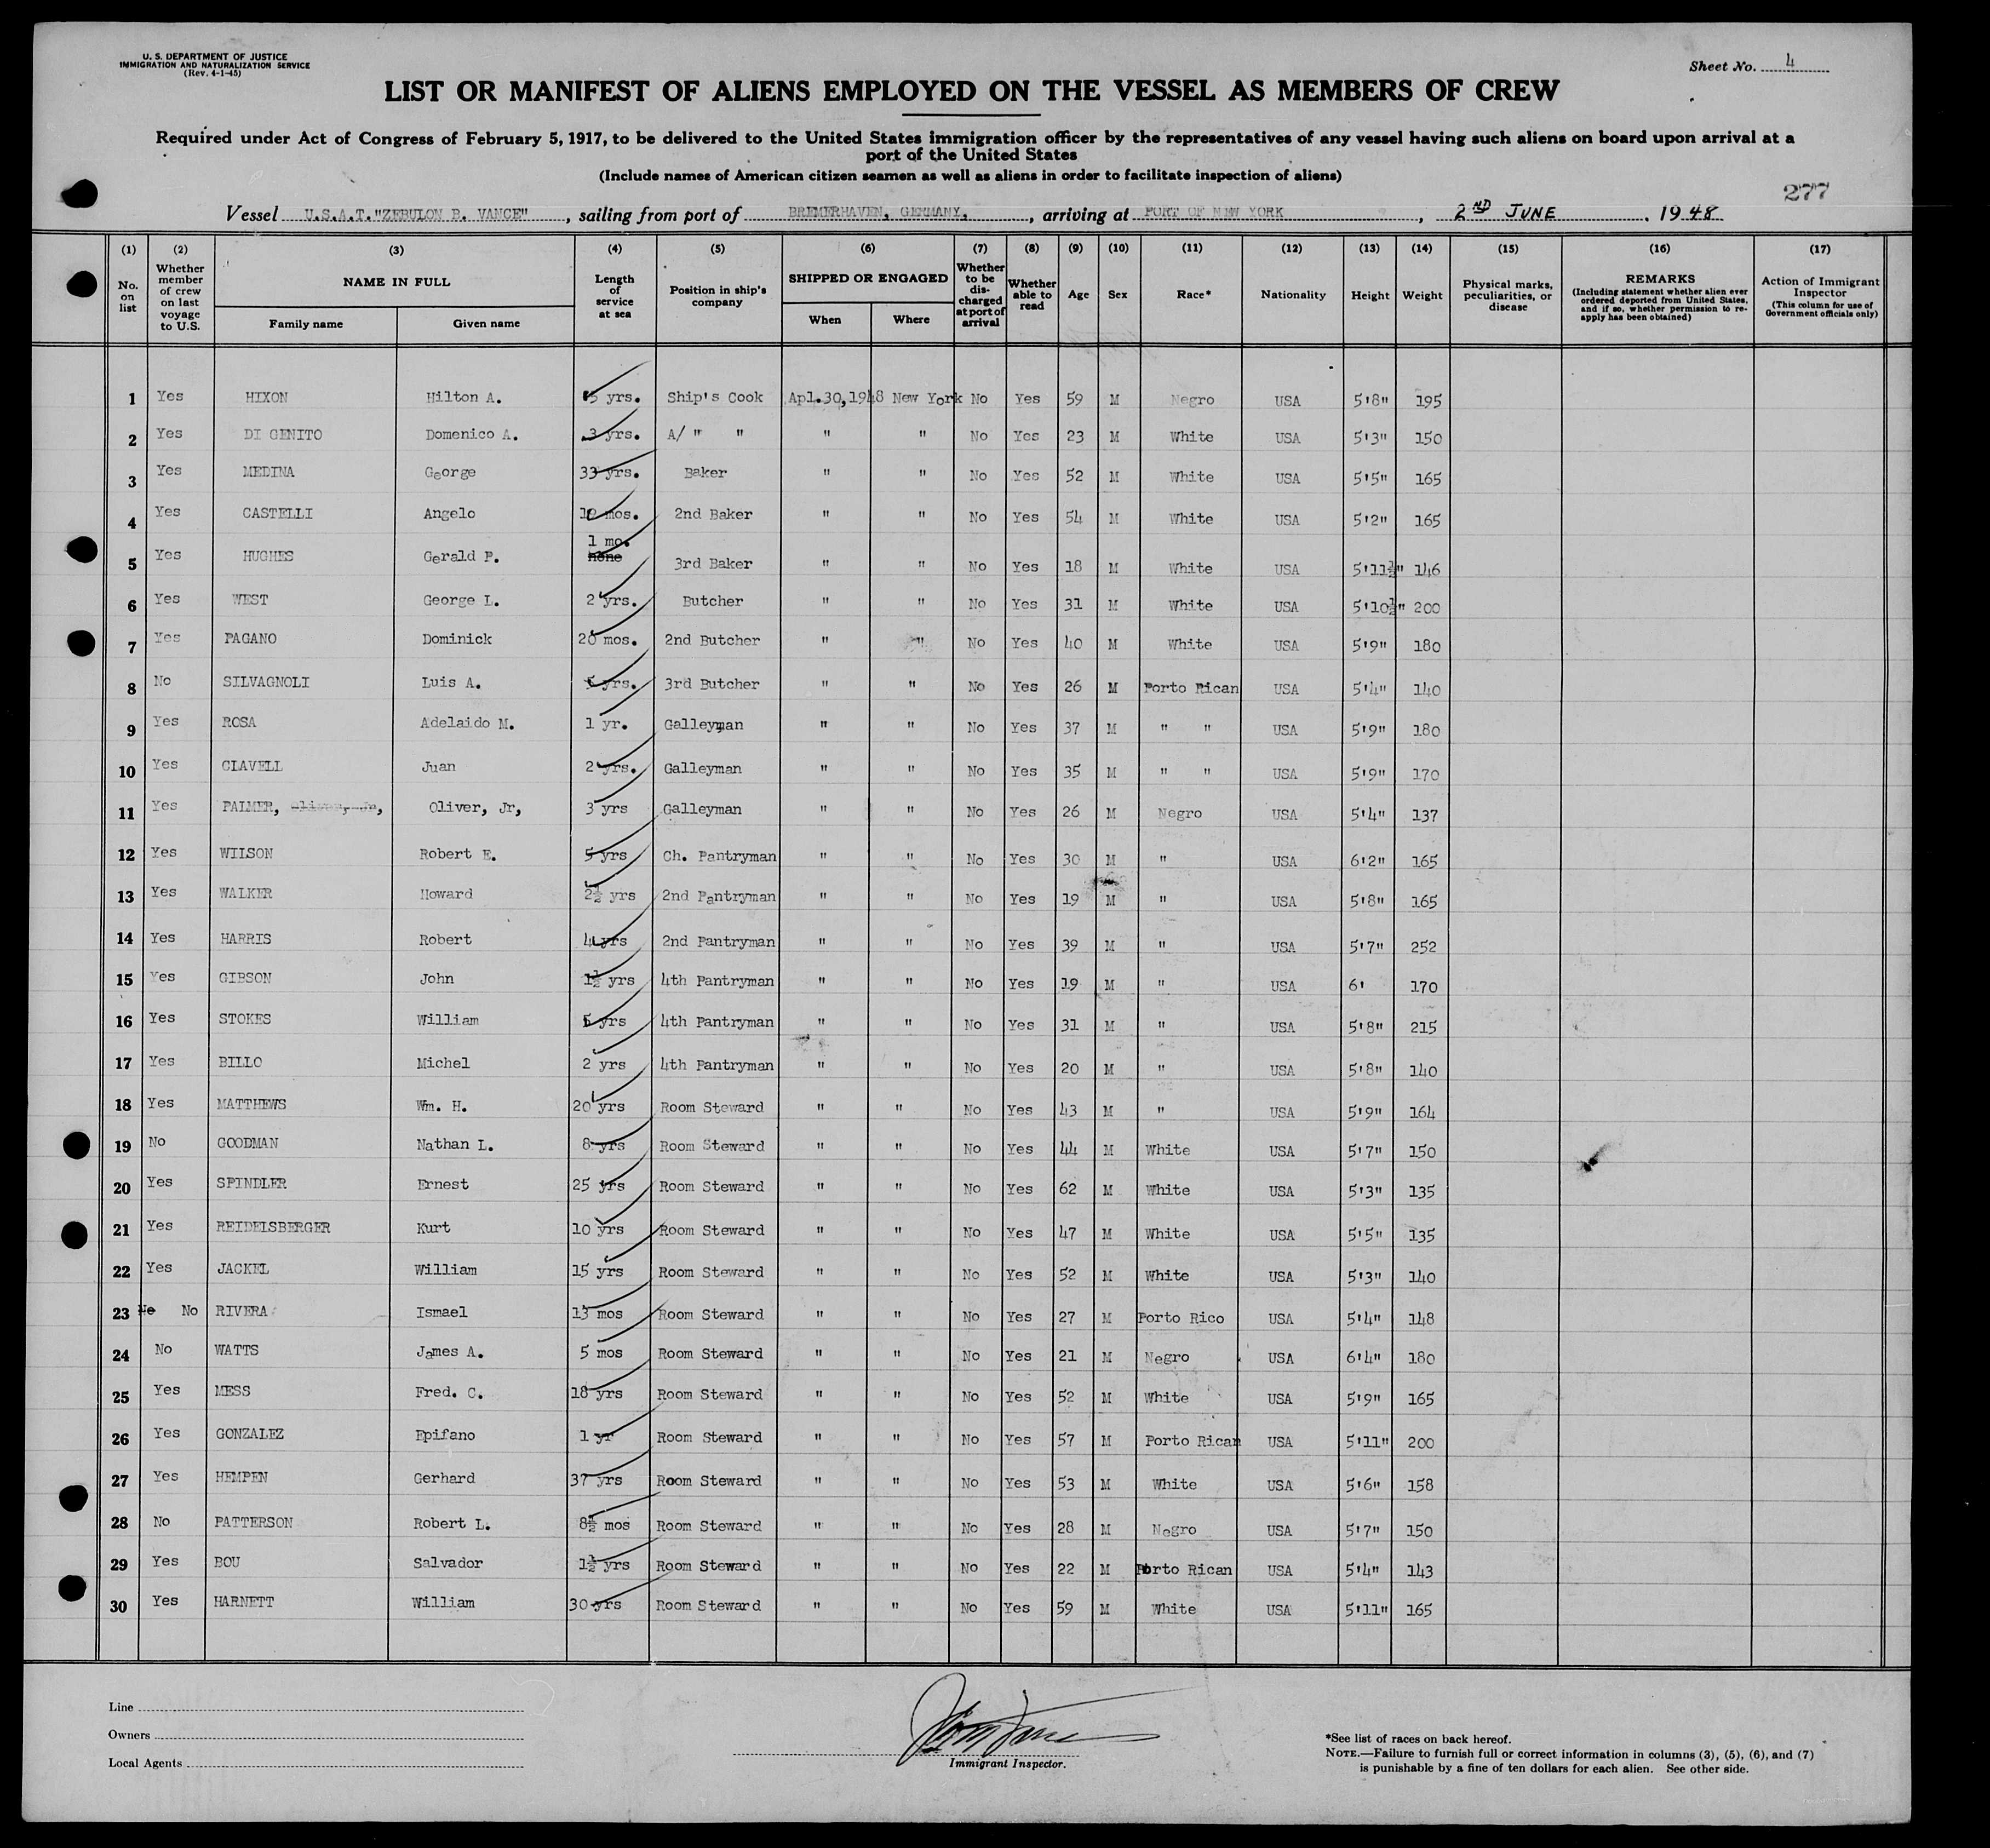 U. S. DEPARTMENT OF JUSTICE
IMMIGRATION AND NATURALIZATION SERVICE
(Rev. 4-1-45)
Sheet No. 4
LIST OR MANIFEST OF ALIENS EMPLOYED ON THE VESSEL AS MEMBERS OF CREW
Required under Act of Congress of February 5, 1917, to be delivered to the United States immigration officer by the representatives of any vessel having such aliens on board upon arrival at a
port of the United States
(Include names of American citizen seamen as well as aliens in order to facilitate inspection of aliens)
277
Vessel U.S.A.T."ZEBULON B. VANCE", sailing from port of BREMERHAVEN, GERMANY, , arriving at PORT OF NEW YORK , 2ND JUNE , 1948
(1) (2) (3) (4) (5) (6) (7) (8) (9) (10) (11) (12) (13) (14) (15) (16) (17)
No. on list
Whether member of crew on last voyage to U.S.
NAME IN FULL
Family name Given name
Length of service at sea
Position in ship's company
SHIPPED OR ENGAGED
When Where
Whether to be discharged at port of arrival
Whether able to read
Age Sex Race* Nationality Height Weight
Physical marks, peculiarities, or disease
REMARKS
(Including statement whether alien ever ordered deported from United States, and if so, whether permission to re-apply has been obtained)
Action of Immigrant Inspector
(This column for use of Government officials only)
1 Yes HIXON Hilton A. yrs. Ship's Cook Apl.30,1948 New York No Yes 59 M Negro USA 5'8" 195
2 Yes DI GENITO Domenico A. 3 yrs. A/ " " " " No Yes 23 M White USA 5'3" 150
3 Yes MEDINA George 33 yrs. Baker " " No Yes 52 M White USA 5'5" 165
4 Yes CASTELLI Angelo mos. 2nd Baker " " No Yes 54 M White USA 5'2" 165
5 Yes HUGHES Gerald P. 1 mo. none 3rd Baker " " No Yes 18 M White USA 5'11½" 146
6 Yes WEST George L. 2 yrs. Butcher " " No Yes 31 M White USA 5'10½" 200
7 Yes PAGANO Dominick 20 mos. 2nd Butcher " " No Yes 40 M White USA 5'9" 180
8 No SILVAGNOLI Luis A. yrs. 3rd Butcher " " No Yes 26 M Porto Rican USA 5'4" 140
9 Yes ROSA Adelaido M. 1 yr. Galleyman " " No Yes 37 M " " USA 5'9" 180
10 Yes CLAVELL Juan 2 yrs. Galleyman " " No Yes 35 M " " USA 5'9" 170
11 Yes PALMER, Oliver, Jr, Oliver, Jr, 3 yrs Galleyman " " No Yes 26 M Negro USA 5'4" 137
12 Yes WILSON Robert E. 5 yrs Ch. Pantryman " " No Yes 30 M " USA 6'2" 165
13 Yes WALKER Howard 2½ yrs 2nd Pantryman " " No Yes 19 M " USA 5'8" 165
14 Yes HARRIS Robert 4 yrs 2nd Pantryman " " No Yes 39 M " USA 5'7" 252
15 Yes GIBSON John 1½ yrs 4th Pantryman " " No Yes 19 M " USA 6' 170
16 Yes STOKES William yrs 4th Pantryman " " No Yes 31 M " USA 5'8" 215
17 Yes BILLO Michel 2 yrs 4th Pantryman " " No Yes 20 M " USA 5'8" 140
18 Yes MATTHEWS Wm. H. 20 yrs Room Steward " " No Yes 43 M " USA 5'9" 164
19 No GOODMAN Nathan L. 8 yrs Room Steward " " No Yes 44 M White USA 5'7" 150
20 Yes SPINDLER Ernest 25 yrs Room Steward " " No Yes 62 M White USA 5'3" 135
21 Yes REIDELSBERGER Kurt 10 yrs Room Steward " " No Yes 47 M White USA 5'5" 135
22 Yes JACKEL William 15 yrs Room Steward " " No Yes 52 M White USA 5'3" 140
23 No No RIVERA Ismael 13 mos Room Steward " " No Yes 27 M Porto Rico USA 5'4" 148
24 No WATTS James A. 5 mos Room Steward " " No Yes 21 M Negro USA 6'4" 180
25 Yes MESS Fred. C. 18 yrs Room Steward " " No Yes 52 M White USA 5'9" 165
26 Yes GONZALEZ Epifano 1 yr Room Steward " " No Yes 57 M Porto Rican USA 5'11" 200
27 Yes HEMPEN Gerhard 37 yrs Room Steward " " No Yes 53 M White USA 5'6" 158
28 No PATTERSON Robert L. 8½ mos Room Steward " " No Yes 28 M Negro USA 5'7" 150
29 Yes BOU Salvador 1½ yrs Room Steward " " No Yes 22 M Porto Rican USA 5'4" 143
30 Yes HARNETT William 30 yrs Room Steward " " No Yes 59 M White USA 5'11" 165
Line
Owners
Local Agents
Immigrant Inspector.
*See list of races on back hereof.
NOTE.—Failure to furnish full or correct information in columns (3), (5), (6), and (7)
is punishable by a fine of ten dollars for each alien. See other side.